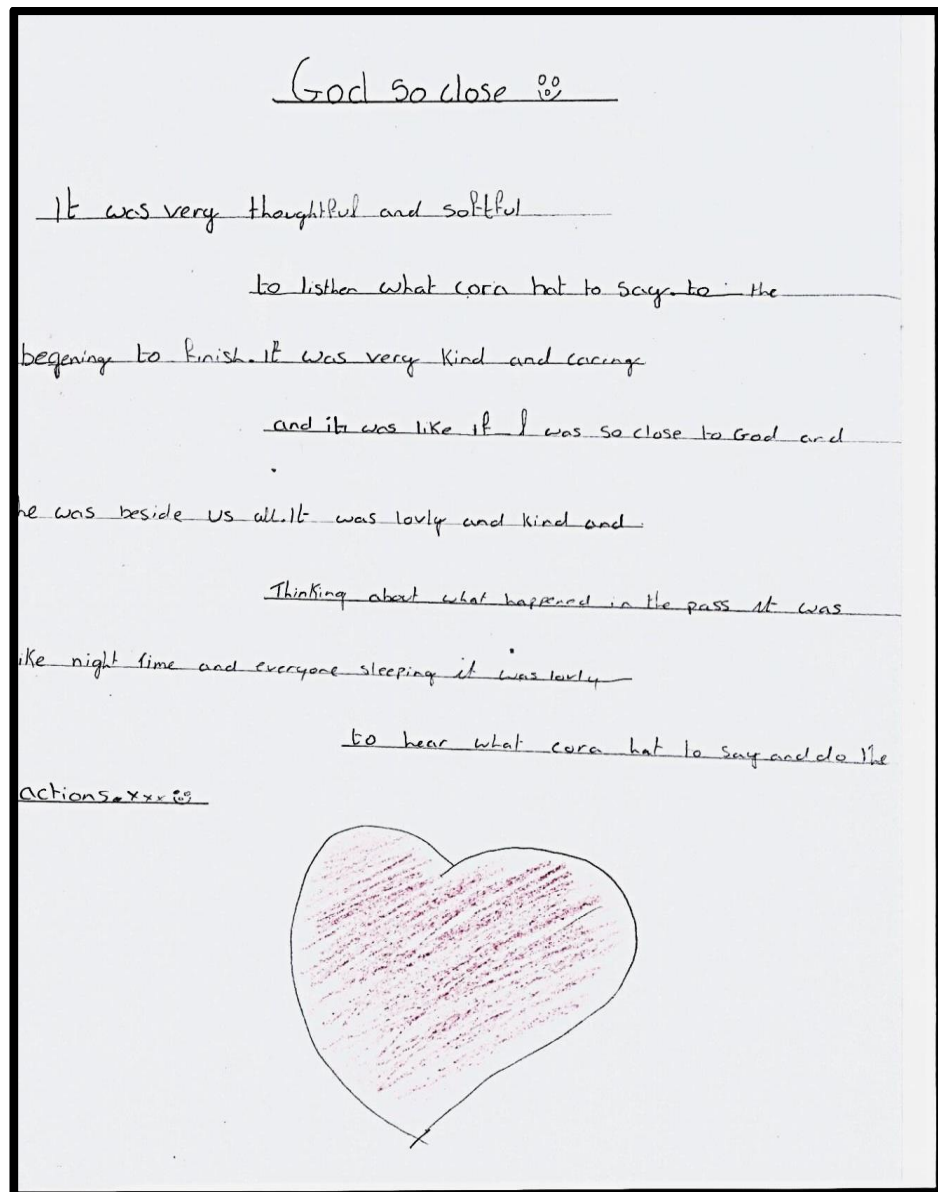 God so close
It was very thoughtful and softful
to listhen what cora hat to say. to the
begening to finish. It was very kind and careing
and it was like if I was so close to God and
he was beside us all. It was lovly and kind and
Thinking about what happened in the pass it was
like night time and everyone sleeping it was lovly
to hear what cora hat to say and do the
actions. xxx